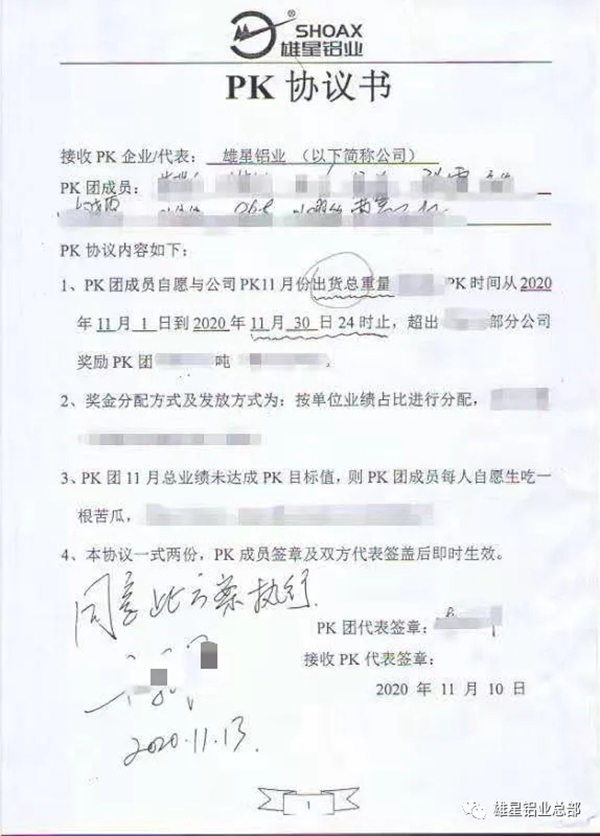 SHOAX
雄星铝业
PK 协议书
接收 PK 企业/代表： 雄星铝业 （以下简称公司）
PK 团成员：
PK 协议内容如下：
1、PK 团成员自愿与公司 PK11 月份出货总重量 PK 时间从 2020
年 11 月 1 日到 2020 年 11 月 30 日 24 时止，超出 部分公司
奖励 PK 团 吨 。
2、奖金分配方式及发放方式为：按单位业绩占比进行分配，
3、PK 团 11 月总业绩未达成 PK 目标值，则 PK 团成员每人自愿生吃一
根苦瓜，
4、本协议一式两份，PK 成员签章及双方代表签盖后即时生效。
同意此方案执行.
PK 团代表签章：
接收 PK 代表签章：
2020 年 11 月 10 日
2020.11.13.
1
雄星铝业总部